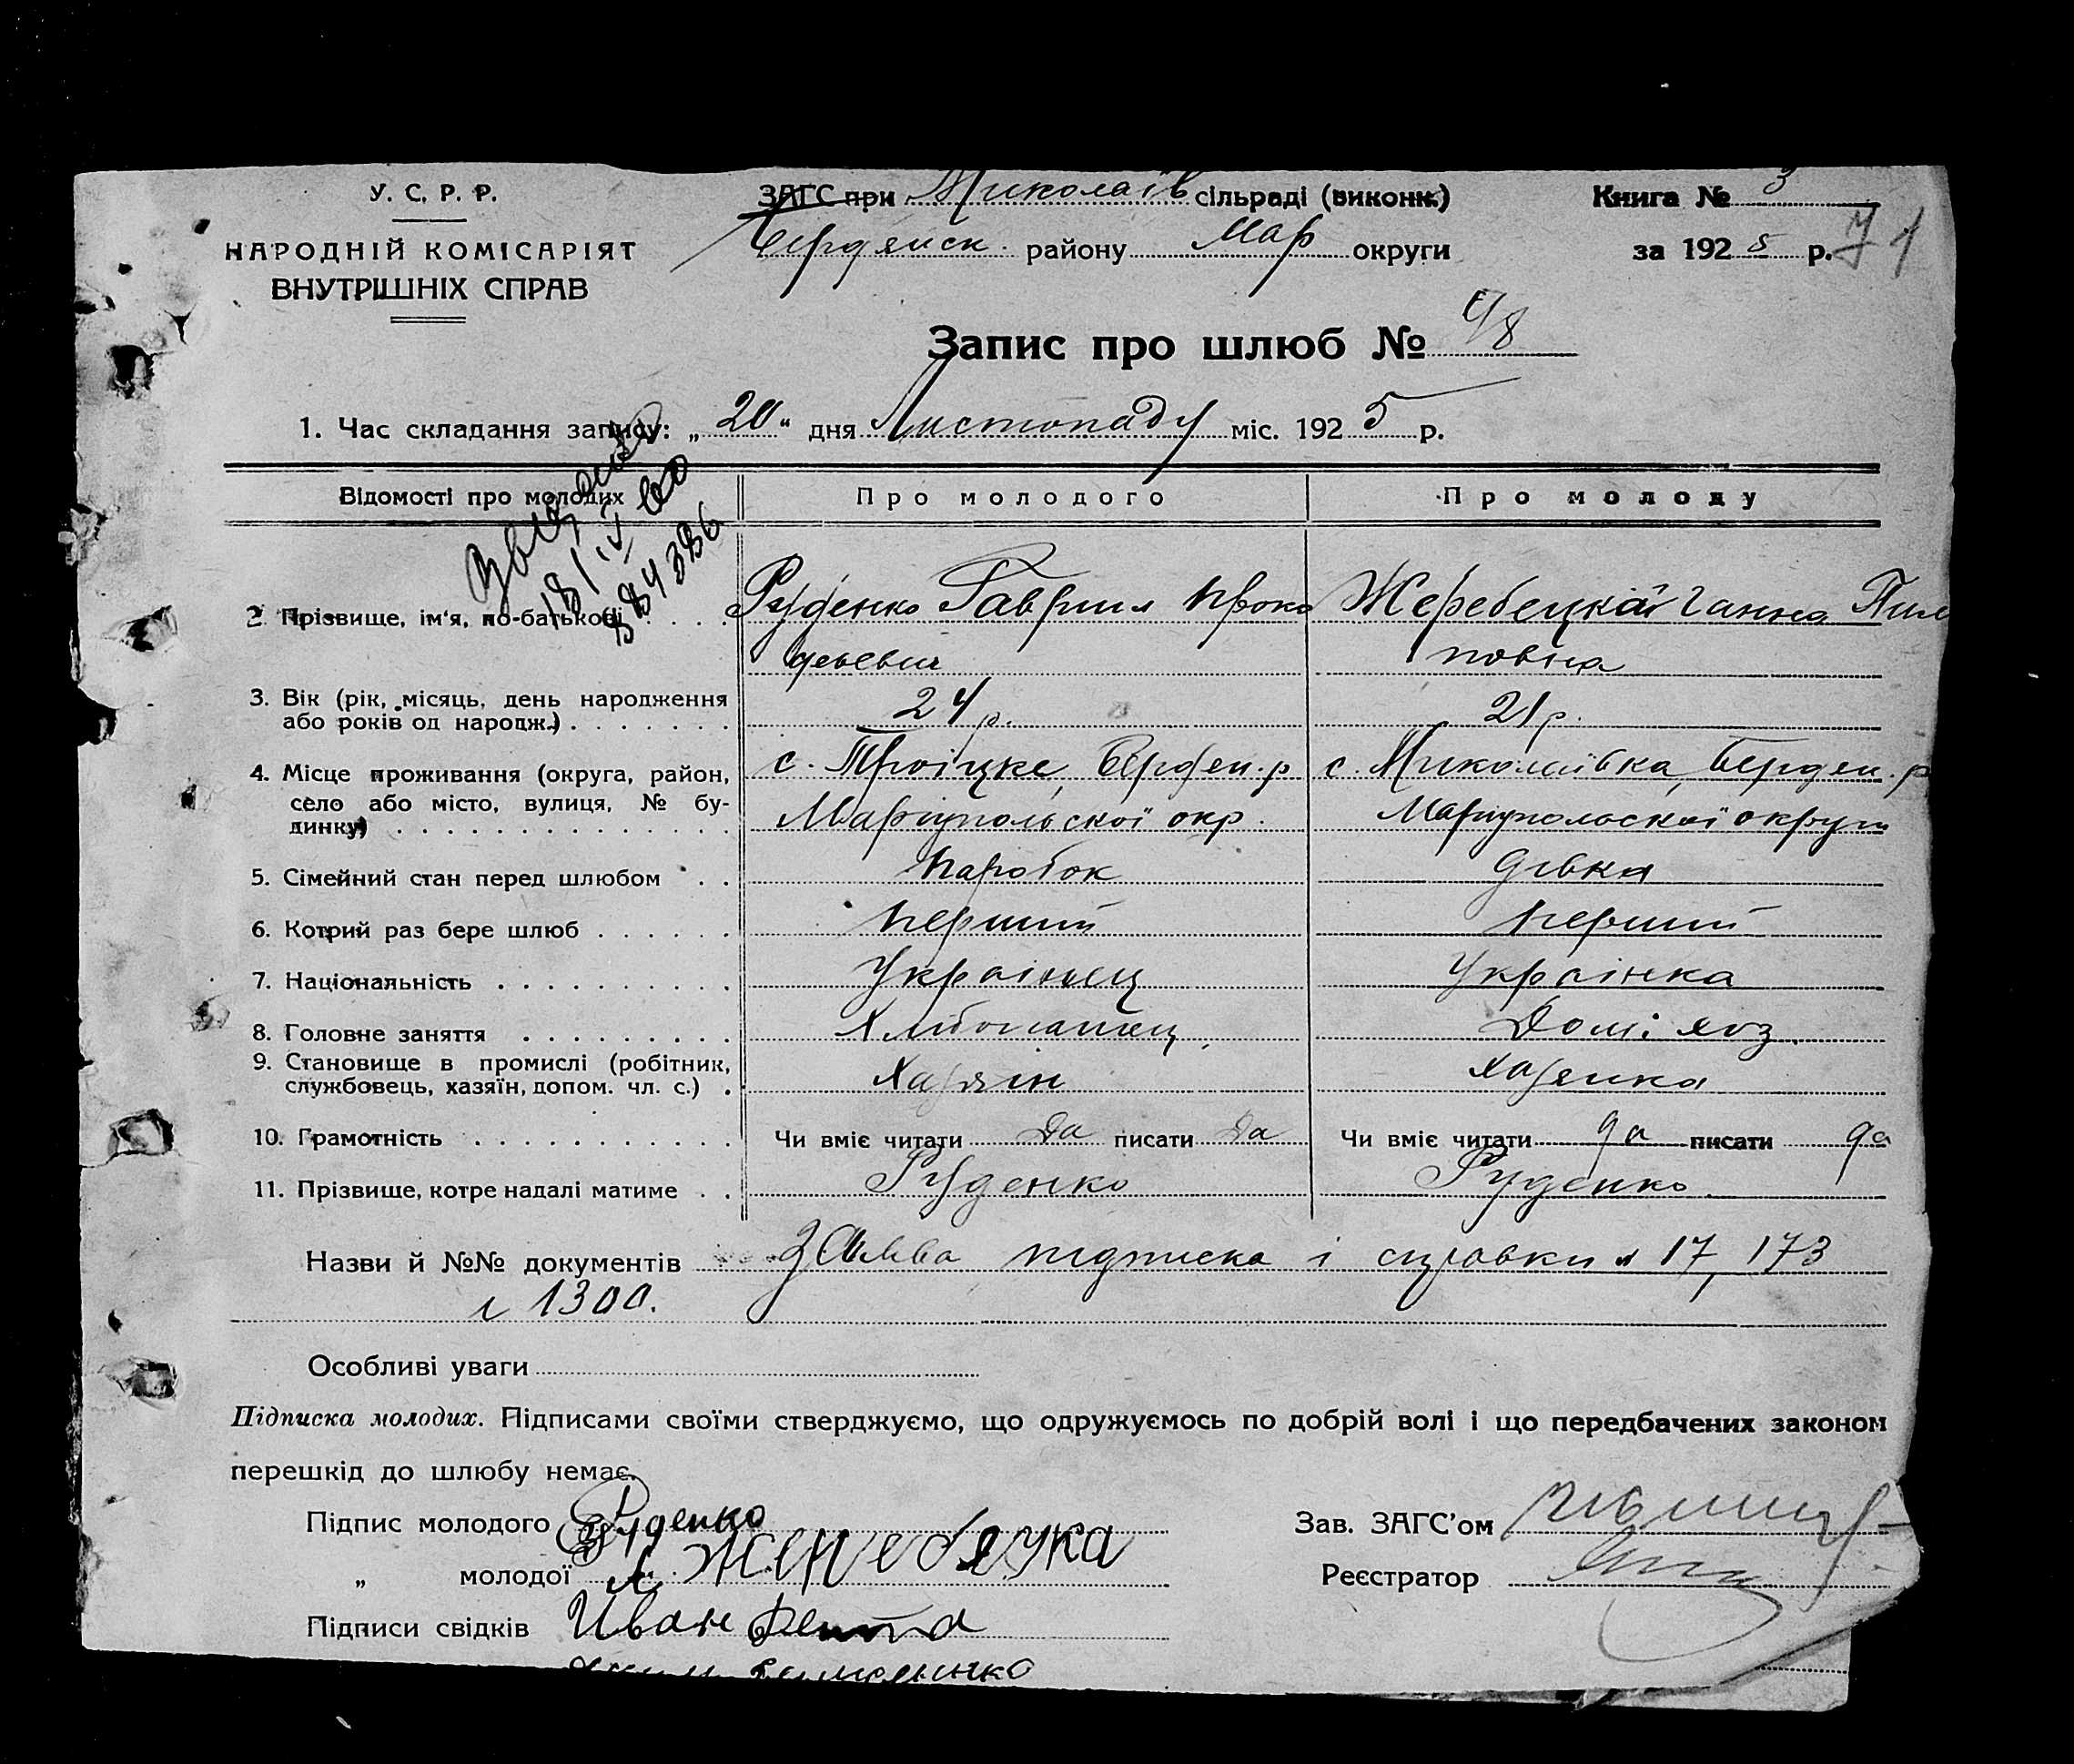 У. С. Р. Р.
НАРОДНІЙ КОМІСАРІЯТ
ВНУТРІШНІХ СПРАВ
ЗАГС при Миколаїв сільраді (виконк.)
Бердянск. району Мар округи
Книга № 3
за 192 5 р. 71
Запис про шлюб №
1. Час складання запису: „ 20 “ дня Листопаду міс. 192 5 р.
Відомості про молодих Про молодого Про молоду
2. Прізвище, ім'я, по-батькові . . . . Руденко Гаврил Проко Жеребецкая Ганна Пили
фьевич повна
3. Вік (рік, місяць, день народження
або років од народж.) . . . . . . . 24 р. 21 р.
4. Місце проживання (округа, район, с. Троіцке, Берден. р с. Миколаївка, Берден. р
село або місто, вулиця, № бу-
динку) . . . . . . . . . . . . . . Маріупольскої окр. Маріупольскої округи
5. Сімейний стан перед шлюбом . . Паробок дівка
6. Котрий раз бере шлюб . . . . . . Перший Перший
7. Національність . . . . . . . . . . Украінец Украінка
8. Головне заняття . . . . . . . . . Домі хоз.
9. Становище в промислі (робітник,
службовець, хазяїн, допом. чл. с.) . Хазяін Хазяика
10. Грамотність . . . . . . . . . . . Чи вміє читати да писати да Чи вміє читати да писати да
11. Прізвище, котре надалі матиме . . Руденко Руденко
Назви й №№ документів Заява підписка і справки № 17, 173
и 1300.
Особливі уваги
Підписка молодих. Підписами своїми стверджуємо, що одружуємось по добрій волі і що передбачених законом
перешкід до шлюбу немає.
Підпис молодого Руденко
„ молодої А.
Підписи свідків Иван
Зав. ЗАГС'ом
Реєстратор